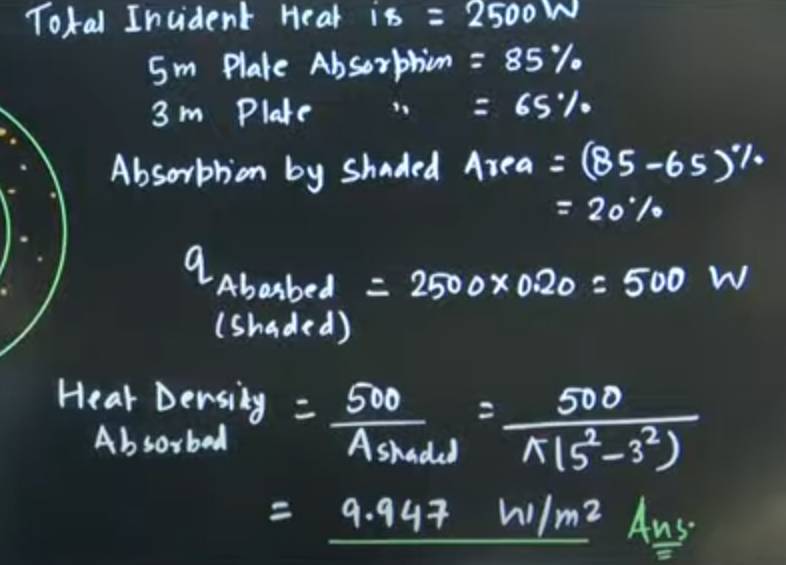 Total Incident Heat is = 2500W
5m Plate Absorption = 85%
3m Plate " = 65%
Absorption by Shaded Area = (85-65)%
= 20%
q Absorbed (Shaded) = 2500×0.20 = 500 W
Heat Density Absorbed = 500 / A shaded = 500 / π(5²-3²)
= 9.947 W/m2 Ans.